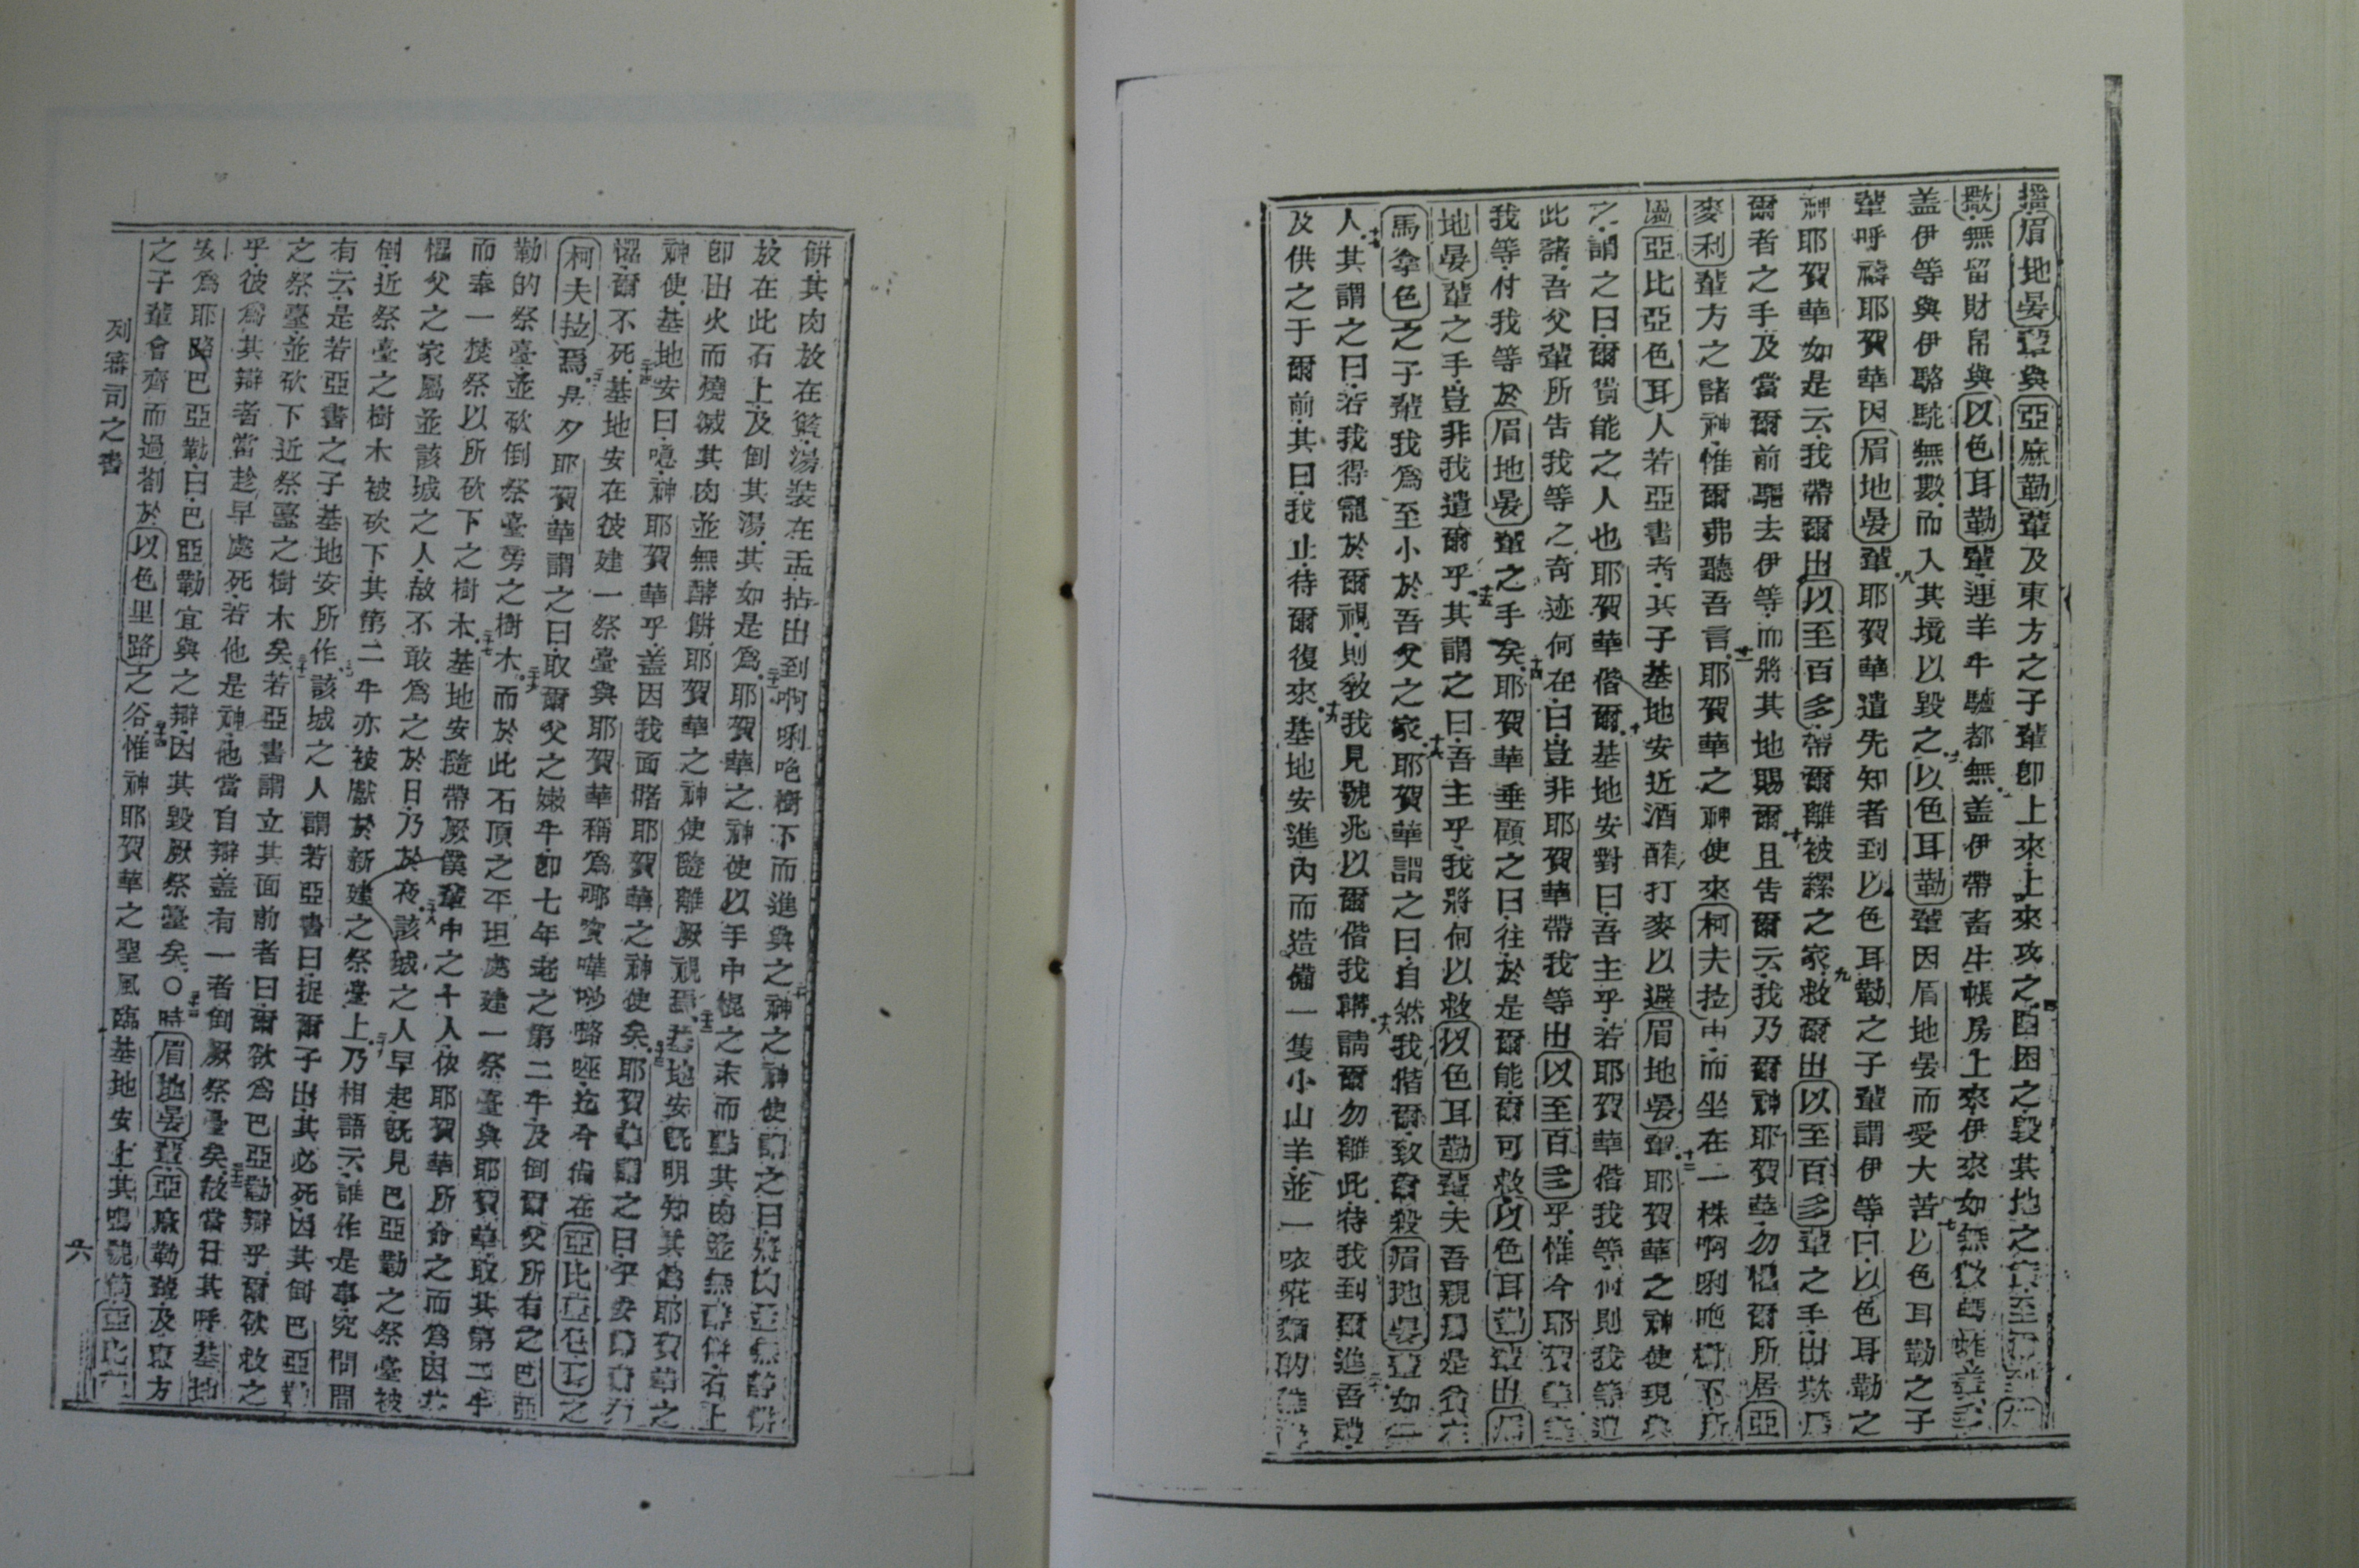 播眉地晏輩與亞麻勒輩及東方之子輩卽上來上來攻之四困之毀其地之
撒無留財帛與以色耳勒輩連羊牛驢都無蓋伊帶畜生帳房上來伊來如無數
盖伊等與伊駱駝無數而入其境以毀之七以色耳勒輩因眉地晏而受大苦七以色耳勒之子
輩呼禱耶賀華因眉地晏輩八耶賀華遣先知者到以色耳勒之子輩謂伊等曰以色耳勒之
神耶賀華如是云我帶爾出以至百多帶爾離被縲之家九救爾出以至百多輩之手出欺
爾者之手及當爾前驅去伊等而將其地賜爾十且告爾云我乃爾神耶賀華勿懼爾所居亞
麥利輩方之諸神惟爾弗聽吾言十一耶賀華之神使來柯夫拉而坐在一株啊唎吔樹下所
亞比亞色耳人若亞書者其子基地安近酒醡打麥以避眉地晏輩十二耶賀華之神使現與
之謂之曰爾賞能之人也耶賀華偕爾十基地安對曰吾主乎若耶賀華偕我等何則我等
此諸吾父輩所告我等之奇迹何在曰豈非耶賀華帶我等出以至百多乎惟今耶賀華
我等付我等於眉地晏輩之手矣十四耶賀華垂顧之曰往於是爾能爾可救以色耳勒輩出
地晏輩之手豈非我遣爾乎十五其謂之曰吾主乎我將何以救以色耳勒輩夫吾親是貧
馬拿色之子輩我爲至小於吾父之家十六耶賀華謂之曰自然我偕爾致爾殺眉地晏輩如
人十七其謂之曰若我得寵於爾視則敎我見號兆以爾偕我講十八請爾勿離此待我到爾進吾禮
及供之于爾前其曰我止待爾復來十九基地安進內而造備一隻小山羊並一
餅其肉放在籃湯裝在盂拈出到啊唎吔樹下而進與之二十神之神使謂之曰將肉並無酵餅
放在此石上及倒其湯其如是爲二十一耶賀華之神使以手中棍之末而點其肉並無酵餅石上
卽出火而燒滅其肉並無酵餅耶賀華之神使隨離厥視焉二十二基地安旣明知其爲耶賀華之
神使基地安曰噫神耶賀華乎蓋因我面睹耶賀華之神使矣二十三耶賀華謂之曰平安
懼爾不死二十四基地安在彼建一祭臺與耶賀華稱爲耶賀華迄今尚在亞比亞色耳之
柯夫拉焉二十五是夕耶賀華謂之曰取爾父之嫩牛卽七年老之第二牛及倒爾父所有之巴亞
勒的祭臺並砍倒祭臺旁之樹木二十六而於此石頂之平坦處建一祭臺與耶賀華取其第二牛
而奉一焚祭以所砍下之樹木二十七基地安隨帶厥僕輩中之十人依耶賀華所命之而爲因
懼父之家屬並該城之人故不敢爲之於日乃於夜二十八該城之人早起旣見巴亞勒之祭臺被
倒近祭臺之樹木被砍下其第二牛亦被獻於新建之祭臺上二十九乃相語云誰作是事究問間
有云是若亞書之子基地安所作三十該城之人謂若亞書曰捉爾子出其必死因其倒巴亞勒
之祭臺並砍下近祭臺之樹木矣三十一若亞書謂立其面前者曰爾欲爲巴亞勒辯乎爾欲救之
乎彼爲其辯者當趁早處死若他是神他當自辯蓋有一者倒厥祭臺矣三十二故當日其呼基地
安爲耶路巴亞勒曰巴亞勒宜與之辯因其毀厥祭臺矣〇三十三時眉地晏輩亞麻勒輩及東方
之子輩會齊而過劄於以色里路之谷三十四惟神耶賀華之聖風臨基地安上其鳴號筒亞比
列審司之書
六